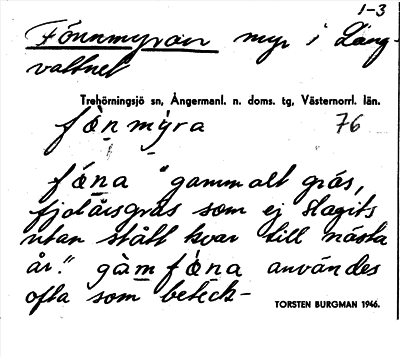 1-3
Fönnmyran myr i Lång-
vattnet
Trehörningsjö sn, Ångermanl. n. doms. tg, Västernorrl. län.
fȯ̀n mẏra 76
fȯ̀na "gammalt gräs,
fjolårsgräs som ej slagits
utan stått kvar till nästa
år." gàm fȯ̀na användes
ofta som beteck-
TORSTEN BURGMAN 1946.